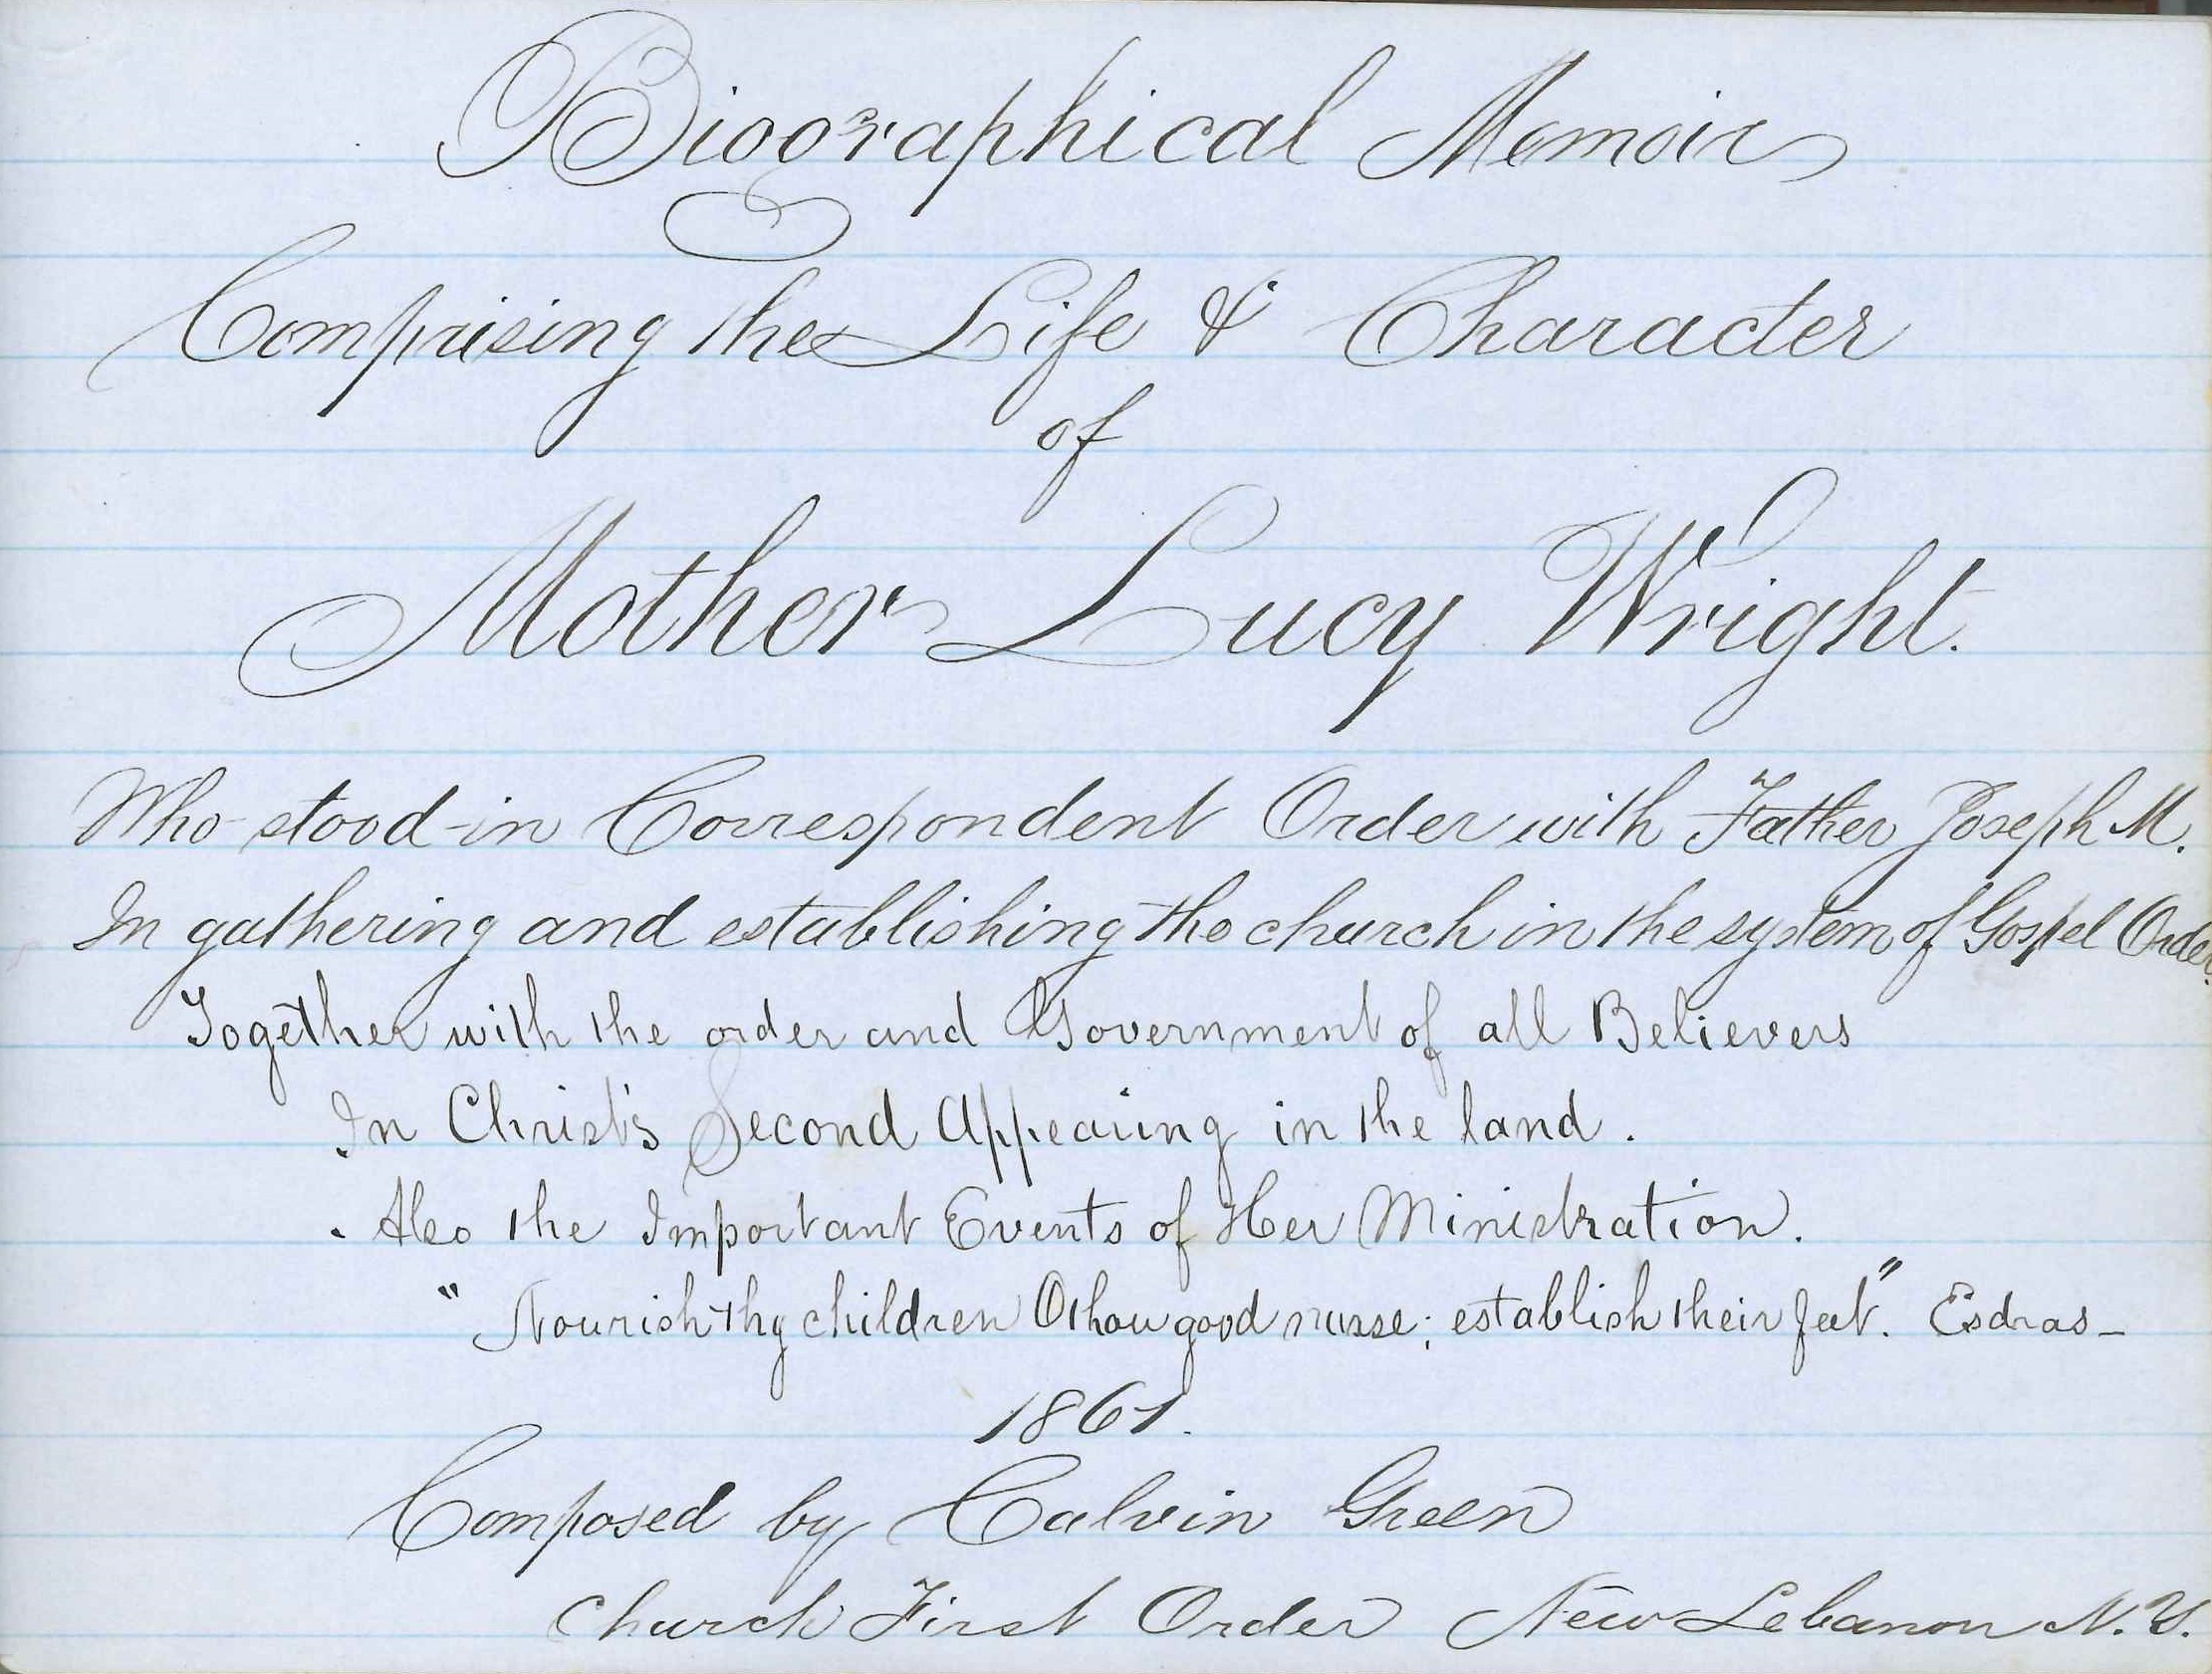 Biographical Memoir
Comprising the Life & Character
of
Mother Lucy Wright.
Who stood in Correspondent Order with Father Joseph M.
In gathering and establishing the church in the system of Gospel Order.
Together with the order and Government of all Believers
In Christ's Second Appearing in the land.
Also the Important Events of Her Ministration.
"Nourish thy children O thou good nurse; establish their feet." Esdras–
1861.
Composed by Calvin Green
Church First Order New Lebanon N.Y.